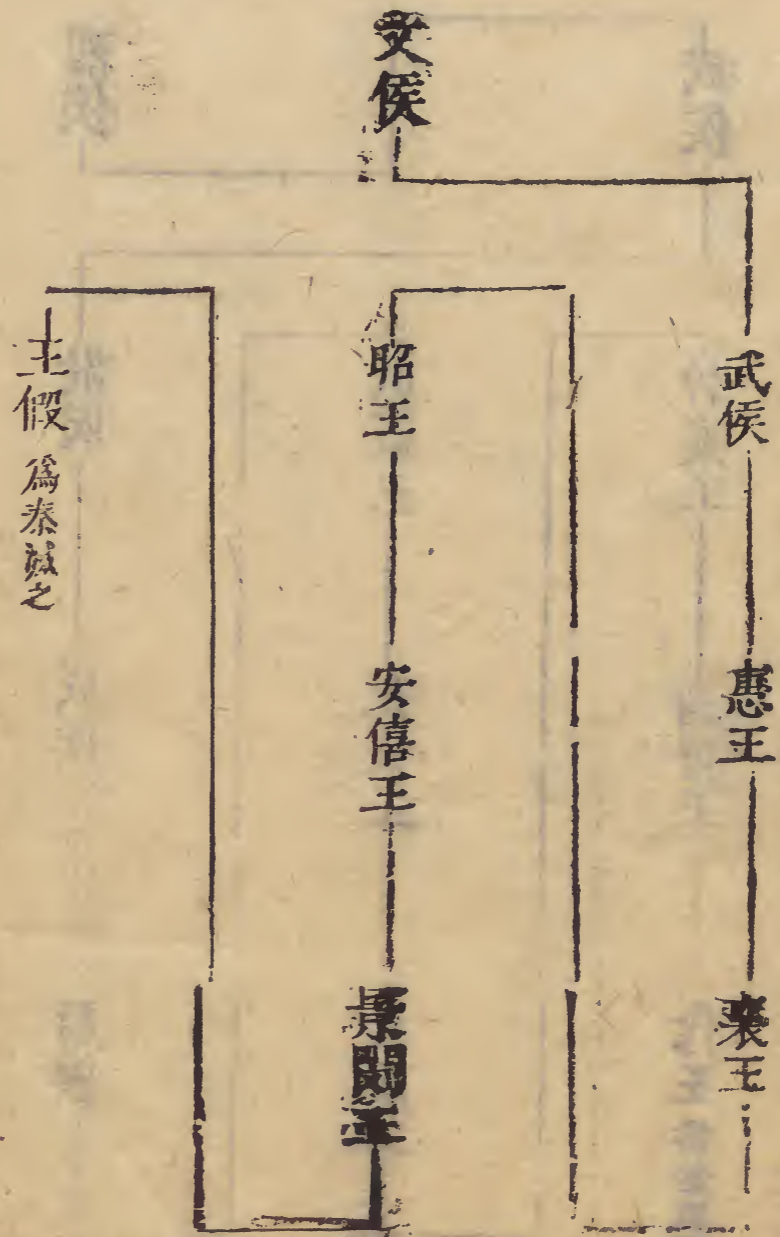 文侯
武侯
惠王
襄王
昭王
安僖王
景閔王
王假 爲秦滅之